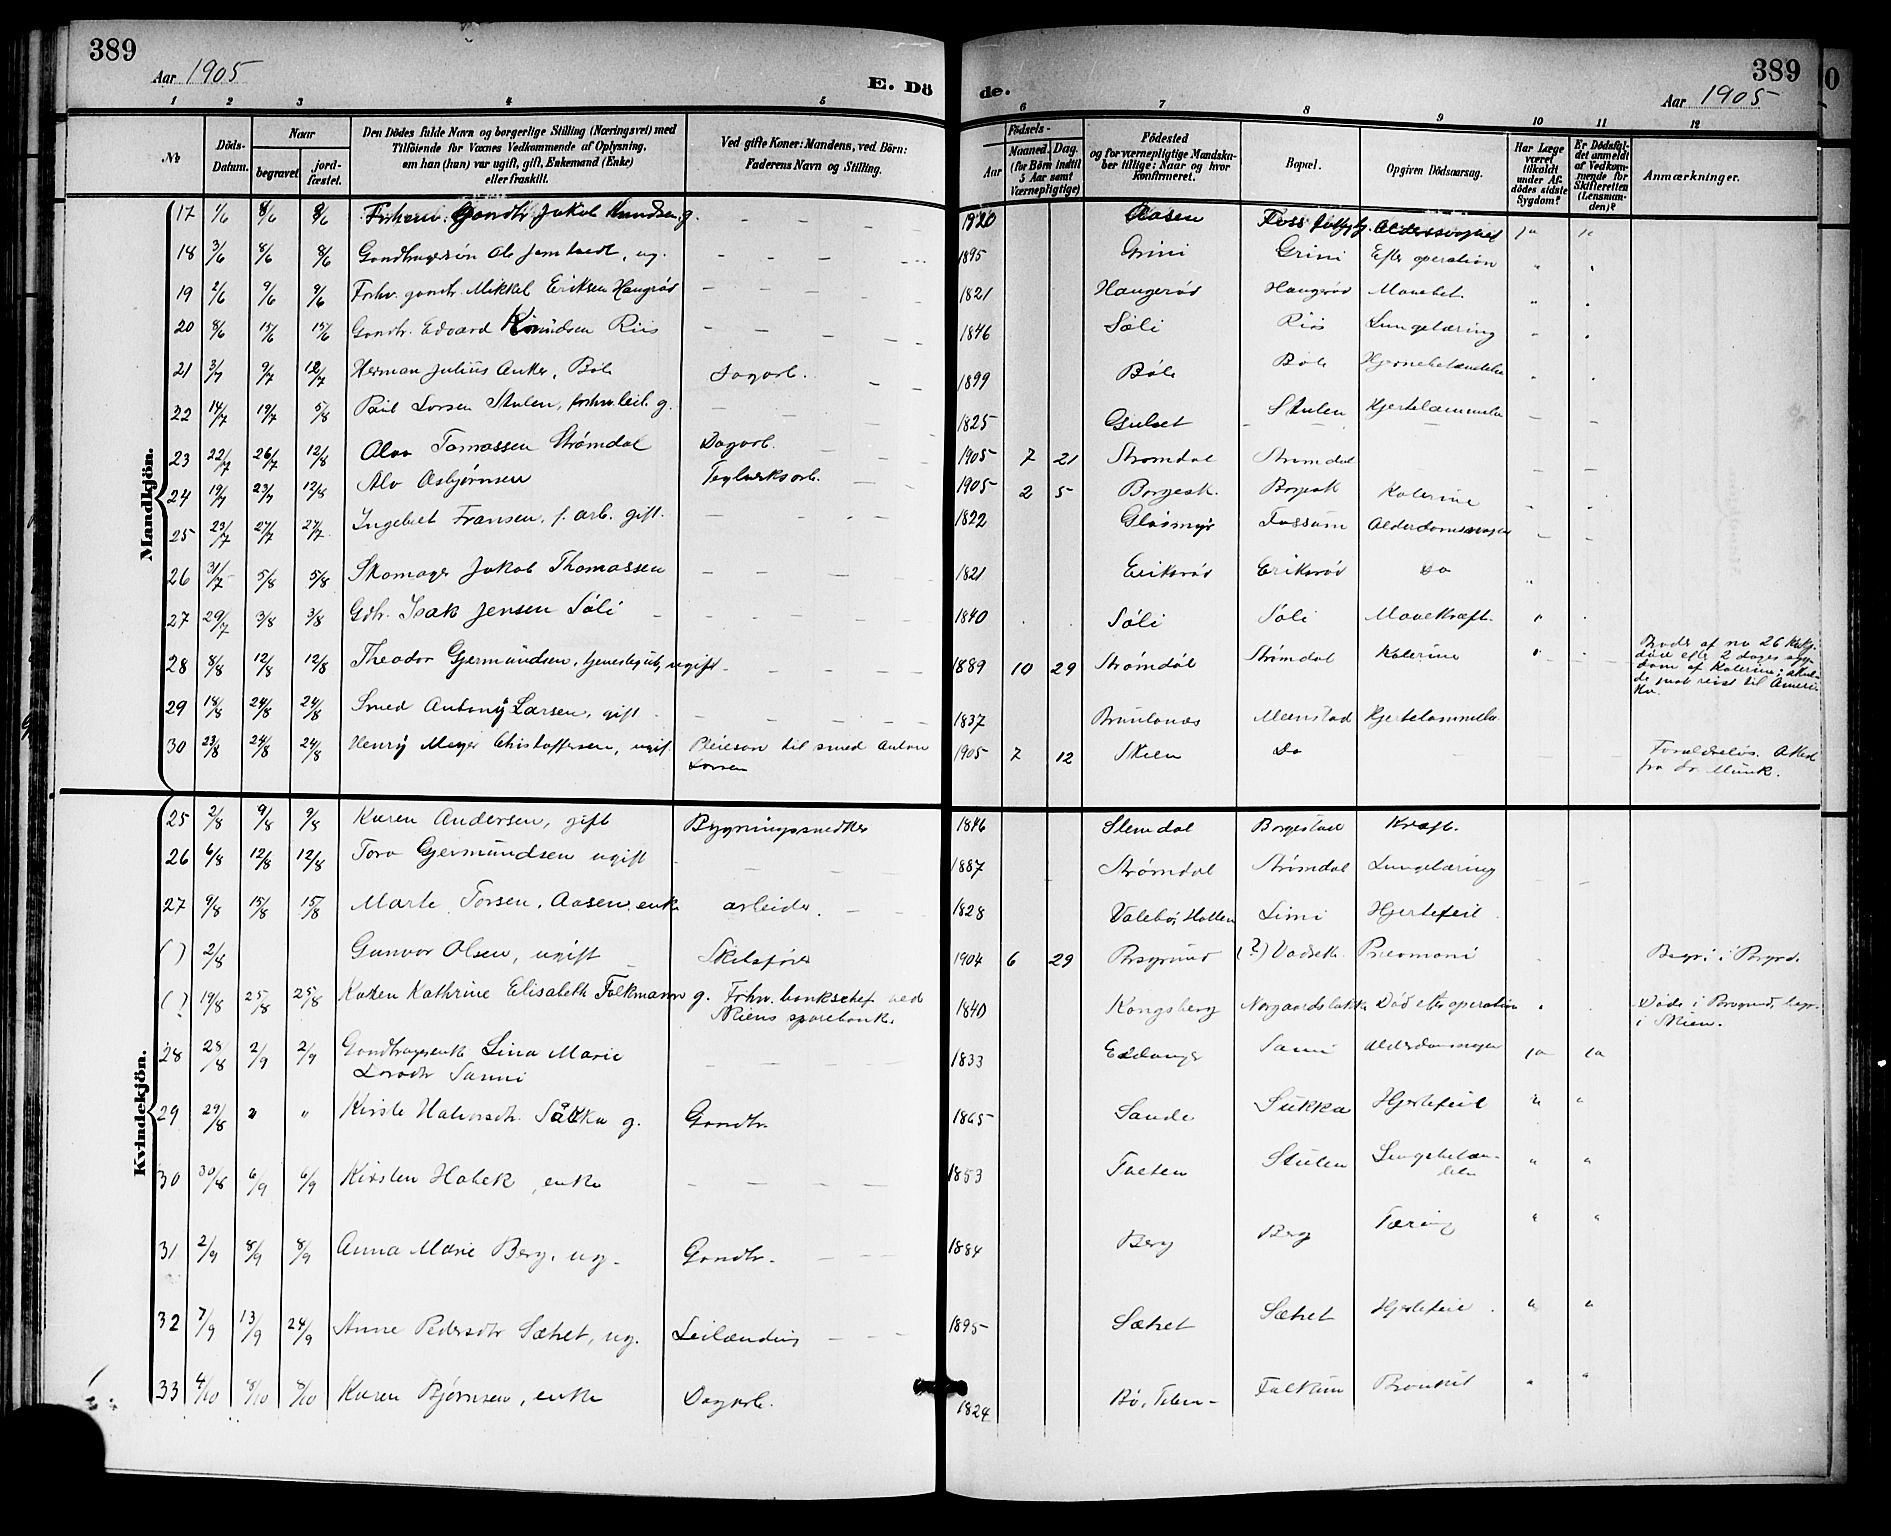 389
Aar 1905
E. Dö
de.
389
Aar 1905
1 2 3 4 5 6 7 8 9 10 11 12
№
Döds-
Datum.
Naar
begravet
jord-
fæstet.
Den Dödes fulde Navn og borgerlige Stilling (Næringsvei) med
Tilföiende for Voxnes Vedkommende af Oplysning,
om han (hun) var ugift, gift, Enkemand (Enke)
eller fraskilt.
Ved gifte Koner: Mandens, ved Börn:
Faderens Navn og Stilling.
Födsels-
Aar
Maaned. Dag.
(for Börn indtil
5 Aar samt
Værnepligtige)
Födested
og for værnepligtige Mandska-
ber tillige: Naar og hvor
konfirmeret.
Bopæl.
Opgiven Dödsaarsag.
Har Læge
været
tilkaldt
under Af-
dödes sidste
Sygdom?
Er Dödsfal-
det anmeldt
af Vedkom-
mende for
Skifteretten
(Lensman-
den)?
Anmærkninger.
Mandkjön.
17 1/6 8/6 8/6 Forhenv. Gaardbr. Jakob Knudsen g. 1820 Aasen Foss Alderssvaghed ja
18 3/6 8/6 8/6 ug. 1895 Grini Grini Efter operation "
19 2/6 9/6 9/6 Forhv. gaardbr. Mikkel Eriksen Haugerød 1821 Haugerød Haugerød "
20 8/6 15/6 15/6 Gaardbr. Edvard Knudsen Riis 1846 Søli Riis Lungetæring "
21 3/7 9/7 12/7 Herman Julius Anker, Bøle Dagarb. 1899 Bøle Bøle Hjernebetændelse
22 14/7 19/7 5/8 Paul Larsen Stulen, forhv. leil. g. 1825 Gulset Stulen Hjertelammelse
23 22/7 26/7 12/8 Alva Tomassen Strømdal Dagarb. 1905 7 21 Strømdal Strømdal
24 19/7 23/7 12/8 Alv Asbjørnsen Teglverksarb. 1905 2 5 Borgesk. Borgesk Kolerine
25 23/7 27/7 27/7 Ingebret Fransen, f. arb. gift. 1822 Glasmyr Fossum
26 31/7 5/8 5/8 Skomager Jakob Thomassen 1821 Eriksrød Eriksrød Do
27 29/7 3/8 3/8 Gbr. Isak Jensen Søli 1840 Søli Søli Mavekræft. "
28 8/8 12/8 12/8 Theodor Gjermundsen, tjenestegut, ugift 1889 10 29 Strømdal Strømdal Kolerine " Broder af no 26
døde efter 2 dages syg-
dom af Kolerine; skul-
de just reist til Ameri-
ka.
29 18/8 24/8 24/8 Smed Antony Larsen, gift 1837 Brunlanæs Menstad Hjertelammelse
30 23/8 24/8 24/8 Henry Meyer Christoffersen, ugift. Pleieson til smed Anton
Larsen 1905 7 12 Skien Do Forældreløs. Attest
fra dr. Munk.
Kvindekjön.
25 2/8 9/8 9/8 Karen Andersen, gift Bygningssnedker 1846 Slemdal Borgestad Kræft.
26 6/8 12/8 12/8 Tora Gjermundsen ugift 1887 Strømdal Strømdal Lungetæring
27 9/8 15/8 15/8 Marte Torsen, Aasen, enke arbeider. 1828 Valebø, Hollen Limi Hjertefeil
( ) 2/8 Gunvor Olsen, ugift Skibsfører 1904 6 29 Porsgrund (?) Pneomoni Begr. i Porsgrd.
( ) 19/8 25/8 25/8 Karen Kathrine Elisabeth Falkmann g. Forhv. bankschef ved
Skiens sparebank. 1840 Kongsberg Norgaardsløkke Død efter operation " Døde i Porsgrund, begr.
i Skien.
28 28/8 2/9 2/9 Gaardbrugerenke Lina Marie
Larsdtr Sanni 1833 Eidanger Sanni ja ja
29 29/8 " " Kirsti Halvorsdtr. Såkka g. Gaardbr. 1865 Sande Sukka Hjertefeil " "
30 30/8 6/9 6/9 Kirsten Hobek, enke 1853 Tveten Stulen Lungebetæn-
delse " "
31 2/9 8/9 8/9 Anna Marie Berg, ug. Gaardbr. 1884 Berg Berg Tæring " "
32 7/9 13/9 24/9 Anne Pedersdtr Sætret, ug. Leilænding 1895 Sætret Sætret Hjertefeil " "
33 4/10 8/10 8/10 Karen Bjørnsen, enke Dagarb. 1824 Bø, Telem- Falkum Bronkit " "